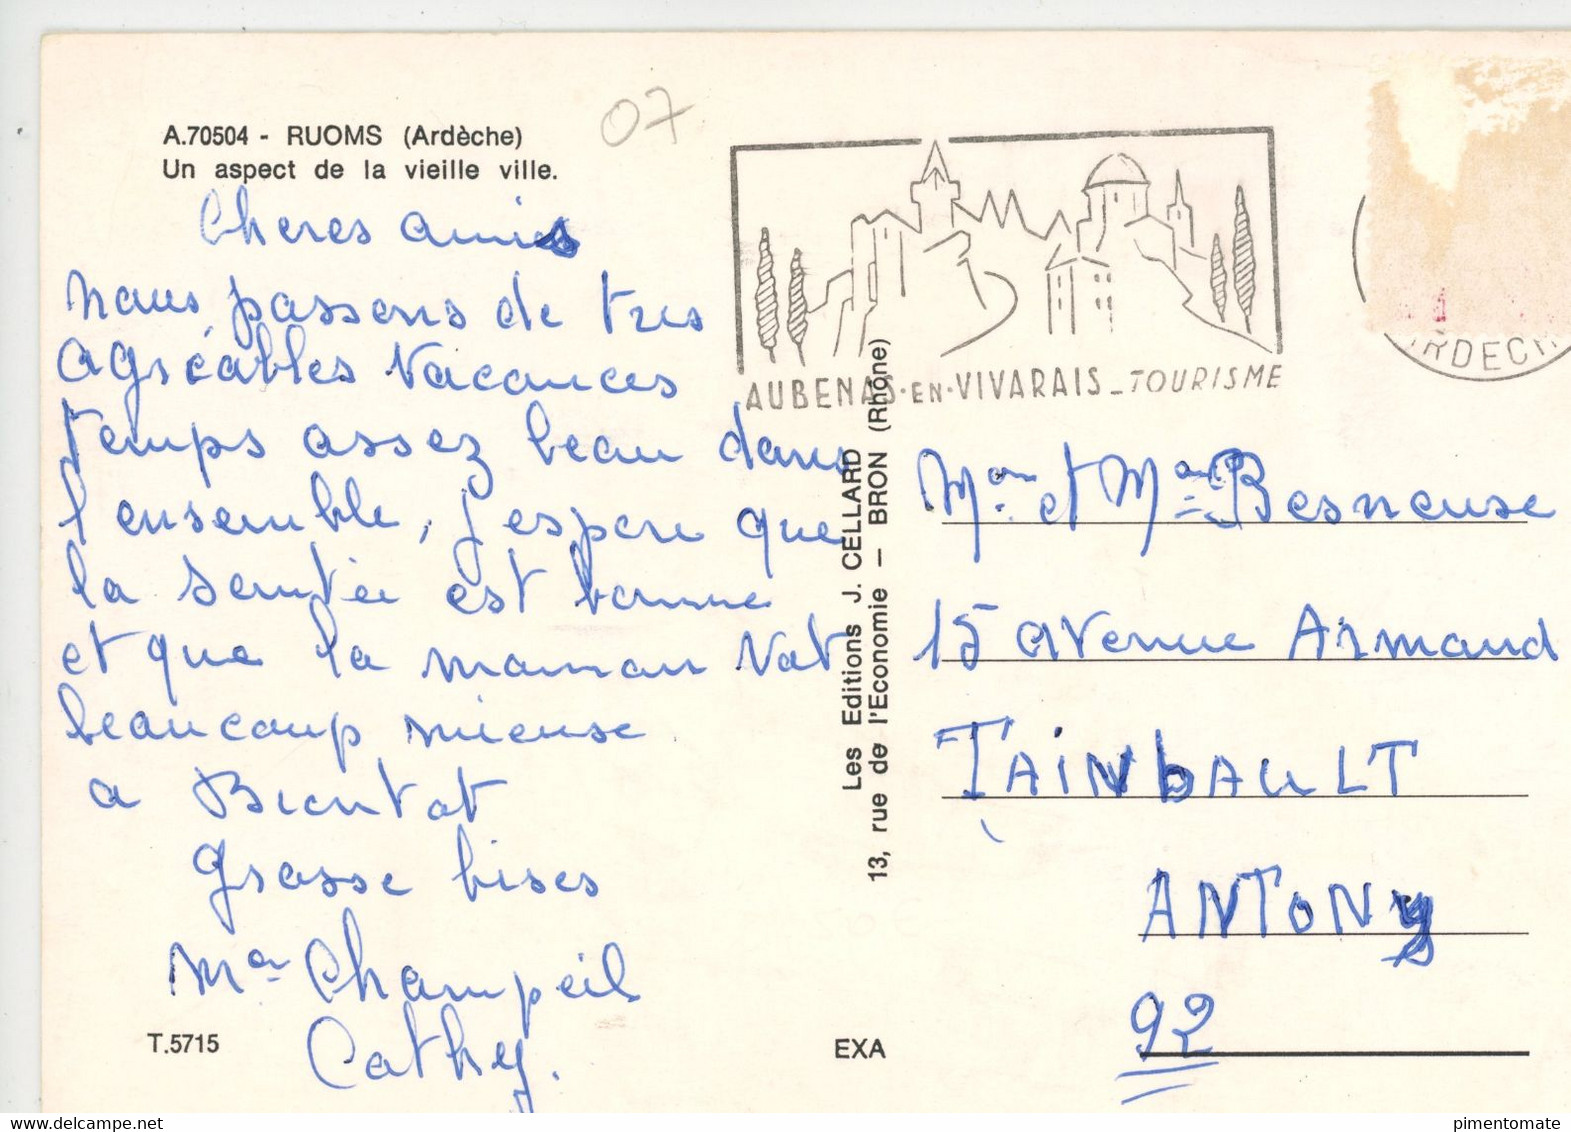 A.70504 - RUOMS (Ardèche)
Un aspect de la vieille ville.
07
Cheres amis
nous passons de tres
agréables vacances
temps assez beau dans
l'ensemble, j'espere que
la santée est bonne
et que la maman vat
beaucoup mieuse
a Bientot
grosse bises
Ma Champeil
Cathy.
T.5715
EXA
Les Editions J. CELLARD
13, rue de l'Economie - BRON (Rhône)
AUBENAS-EN-VIVARAIS_TOURISME
ARDECH
Mon et Ma Besneuse
15 avenue Armand
TAINbAULT
ANTONY
92
pimentomate